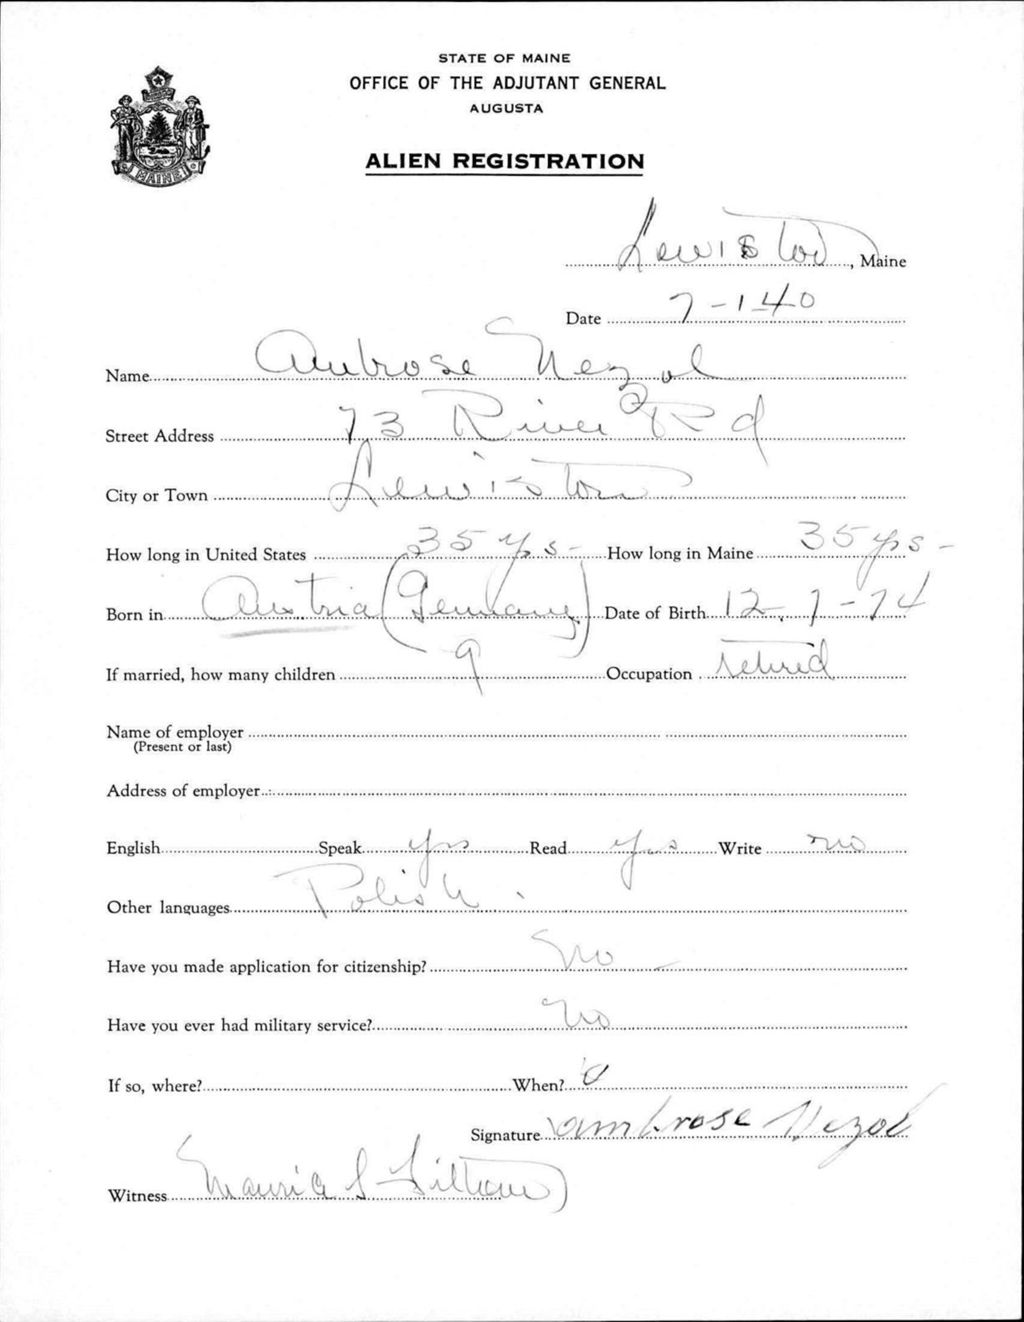 STATE OF MAINE
OFFICE OF THE ADJUTANT GENERAL
AUGUSTA
ALIEN REGISTRATION
MAINE
Lewiston, Maine
Date 7-1-40
Name Ambrose Nezol
Street Address 73 River Rd
City or Town Lewiston
How long in United States 35 yrs - How long in Maine 35 yrs -
Born in Austria (Germany) Date of Birth 12-7-74
If married, how many children 9 Occupation retired
Name of employer
(Present or last)
Address of employer
English Speak yes Read yes Write no
Other languages Polish
Have you made application for citizenship? No
Have you ever had military service? No
If so, where? When?
Signature ambrose Nezol
Witness